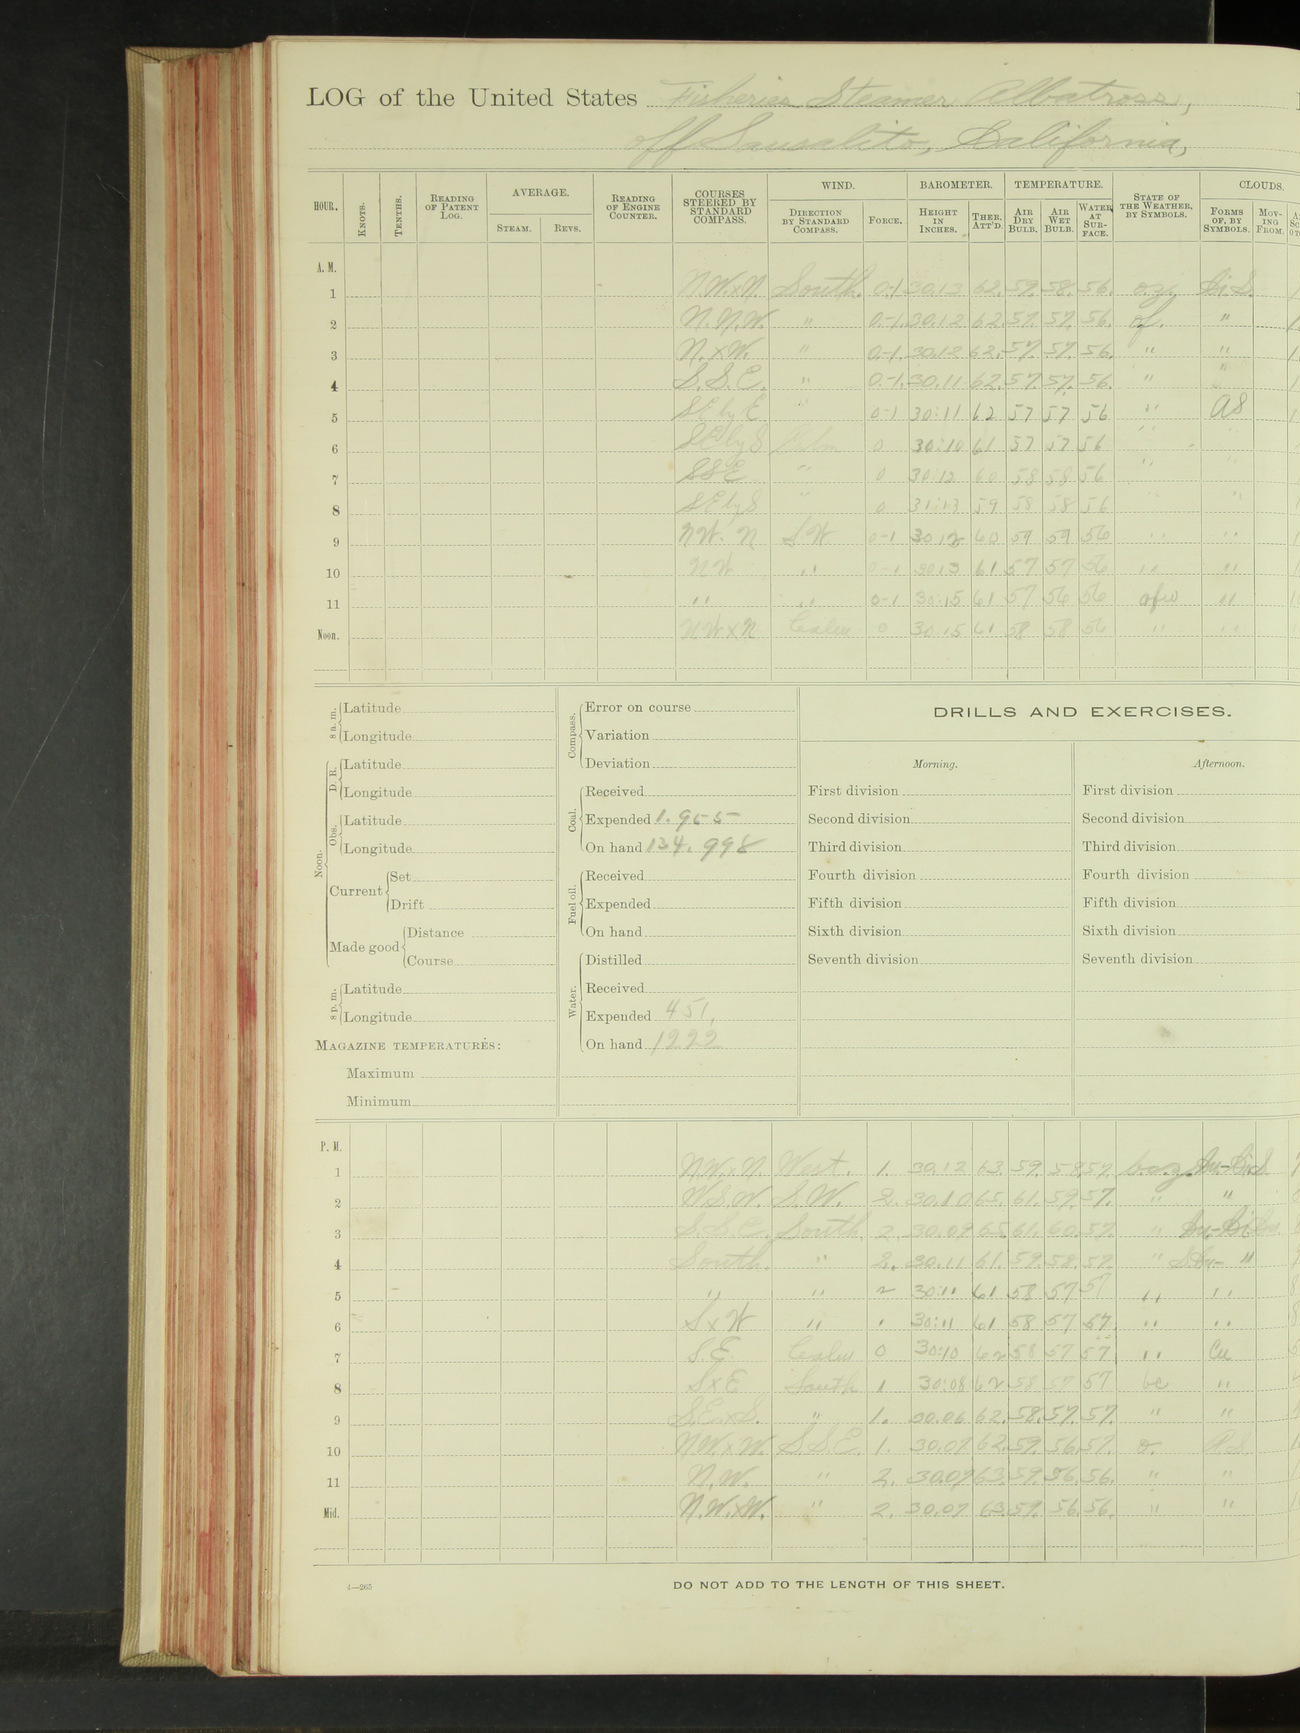 LOG of the United States Fisheries Steamer Albatross,
off Sausalito, California,
HOUR. KNOTS. TENTHS. READING OF PATENT LOG. AVERAGE. STEAM. REVS. READING OF ENGINE COUNTER. COURSES STEERED BY STANDARD COMPASS. WIND. DIRECTION BY STANDARD COMPASS. FORCE. BAROMETER. HEIGHT IN INCHES. THER. ATT'D. TEMPERATURE. AIR DRY BULB. AIR WET BULB. WATER AT SURFACE. STATE OF THE WEATHER, BY SYMBOLS. CLOUDS. FORMS OF, BY SYMBOLS. MOVING FROM.
A. M.
1 N.W.xN. South. 0-1 30.13 62. 59. 58. 56. o.z. Ci.S.
2 N.N.W. " 0-1. 30.12 62. 57. 57. 56. of. "
3 N.xW. " 0-1. 30.12 62. 57. 57. 56. " "
4 S.S.E. " 0-1. 30.11 62. 57. 57. 56. " "
5 SE by E " 0-1 30:11 62 57 57 56 " AS
6 SE by S Calm 0 30:10 61 57 57 56 " "
7 SSE " 0 30:12 60 58 58 56 " "
8 SE by S " 0 31:13 59 58 58 56 " "
9 NW. N S.W. 0-1 30.12 60 59 59 56 " "
10 NW " 0-1 30.13 61 57 57 56 " "
11 " " 0-1 30.15 61 57 56 56 ofw "
Noon. NWxN Calm 0 30.15 61 58 58 56 " "
8 a. m. Latitude
Longitude
Noon. D. R. Latitude
Longitude
Obs. Latitude
Longitude
Current Set
Drift
Made good Distance
Course
8 p. m. Latitude
Longitude
MAGAZINE TEMPERATURES:
Maximum
Minimum
Compass. Error on course
Variation
Deviation
Coal. Received
Expended 1.955
On hand 134.998
Fuel oil. Received
Expended
On hand
Water. Distilled
Received
Expended 451,
On hand 1222
DRILLS AND EXERCISES.
Morning.
First division
Second division
Third division
Fourth division
Fifth division
Sixth division
Seventh division
Afternoon.
First division
Second division
Third division
Fourth division
Fifth division
Sixth division
Seventh division
P. M.
1 N.W.xN. West. 1. 30.12 63. 59. 58. 57. bcz Cu.-Ci.S.
2 W.S.W. S.W. 2. 30.10 65. 61. 59. 57. " "
3 S.S.E. South 2. 30.09 65. 61. 60. 57. "
4 South. " 2. 30.11 61. 59. 58. 57. " S.Cu- "
5 " " 2 30:11 61 58 57 57 " "
6 SxW " " 30:11 61 58 57 57 " "
7 S.E. Calm 0 30:10 62 58 57 57 " Cu
8 SxE South 1 30:08 62 58 57 57 bc "
9 S.E.xS. " 1. 30.06 62. 58. 57. 57. " "
10 N.W.xW. S.S.E. 1. 30.07 62. 59. 56. 57. o. A.S.
11 N.W. " 2. 30.07 63. 59. 56. 56. " "
Mid. N.W.xW. " 2. 30.07 63. 59. 56. 56. " "
4—265
DO NOT ADD TO THE LENGTH OF THIS SHEET.